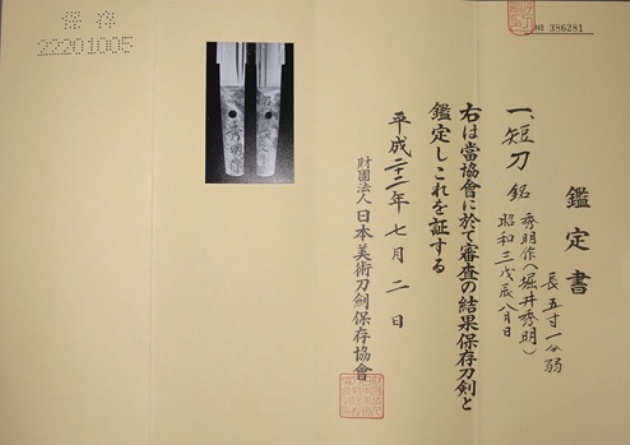 保存
22201005
№ 386281
鑑定書
一、短刀 銘 秀明作(堀井秀明)
昭和三戊辰八月日
長五寸一分弱
右は當協會に於て審査の結果保存刀剣と
鑑定しこれを証する
平成二十二年七月二日
財團法人日本美術刀劍保存協會
秀明作